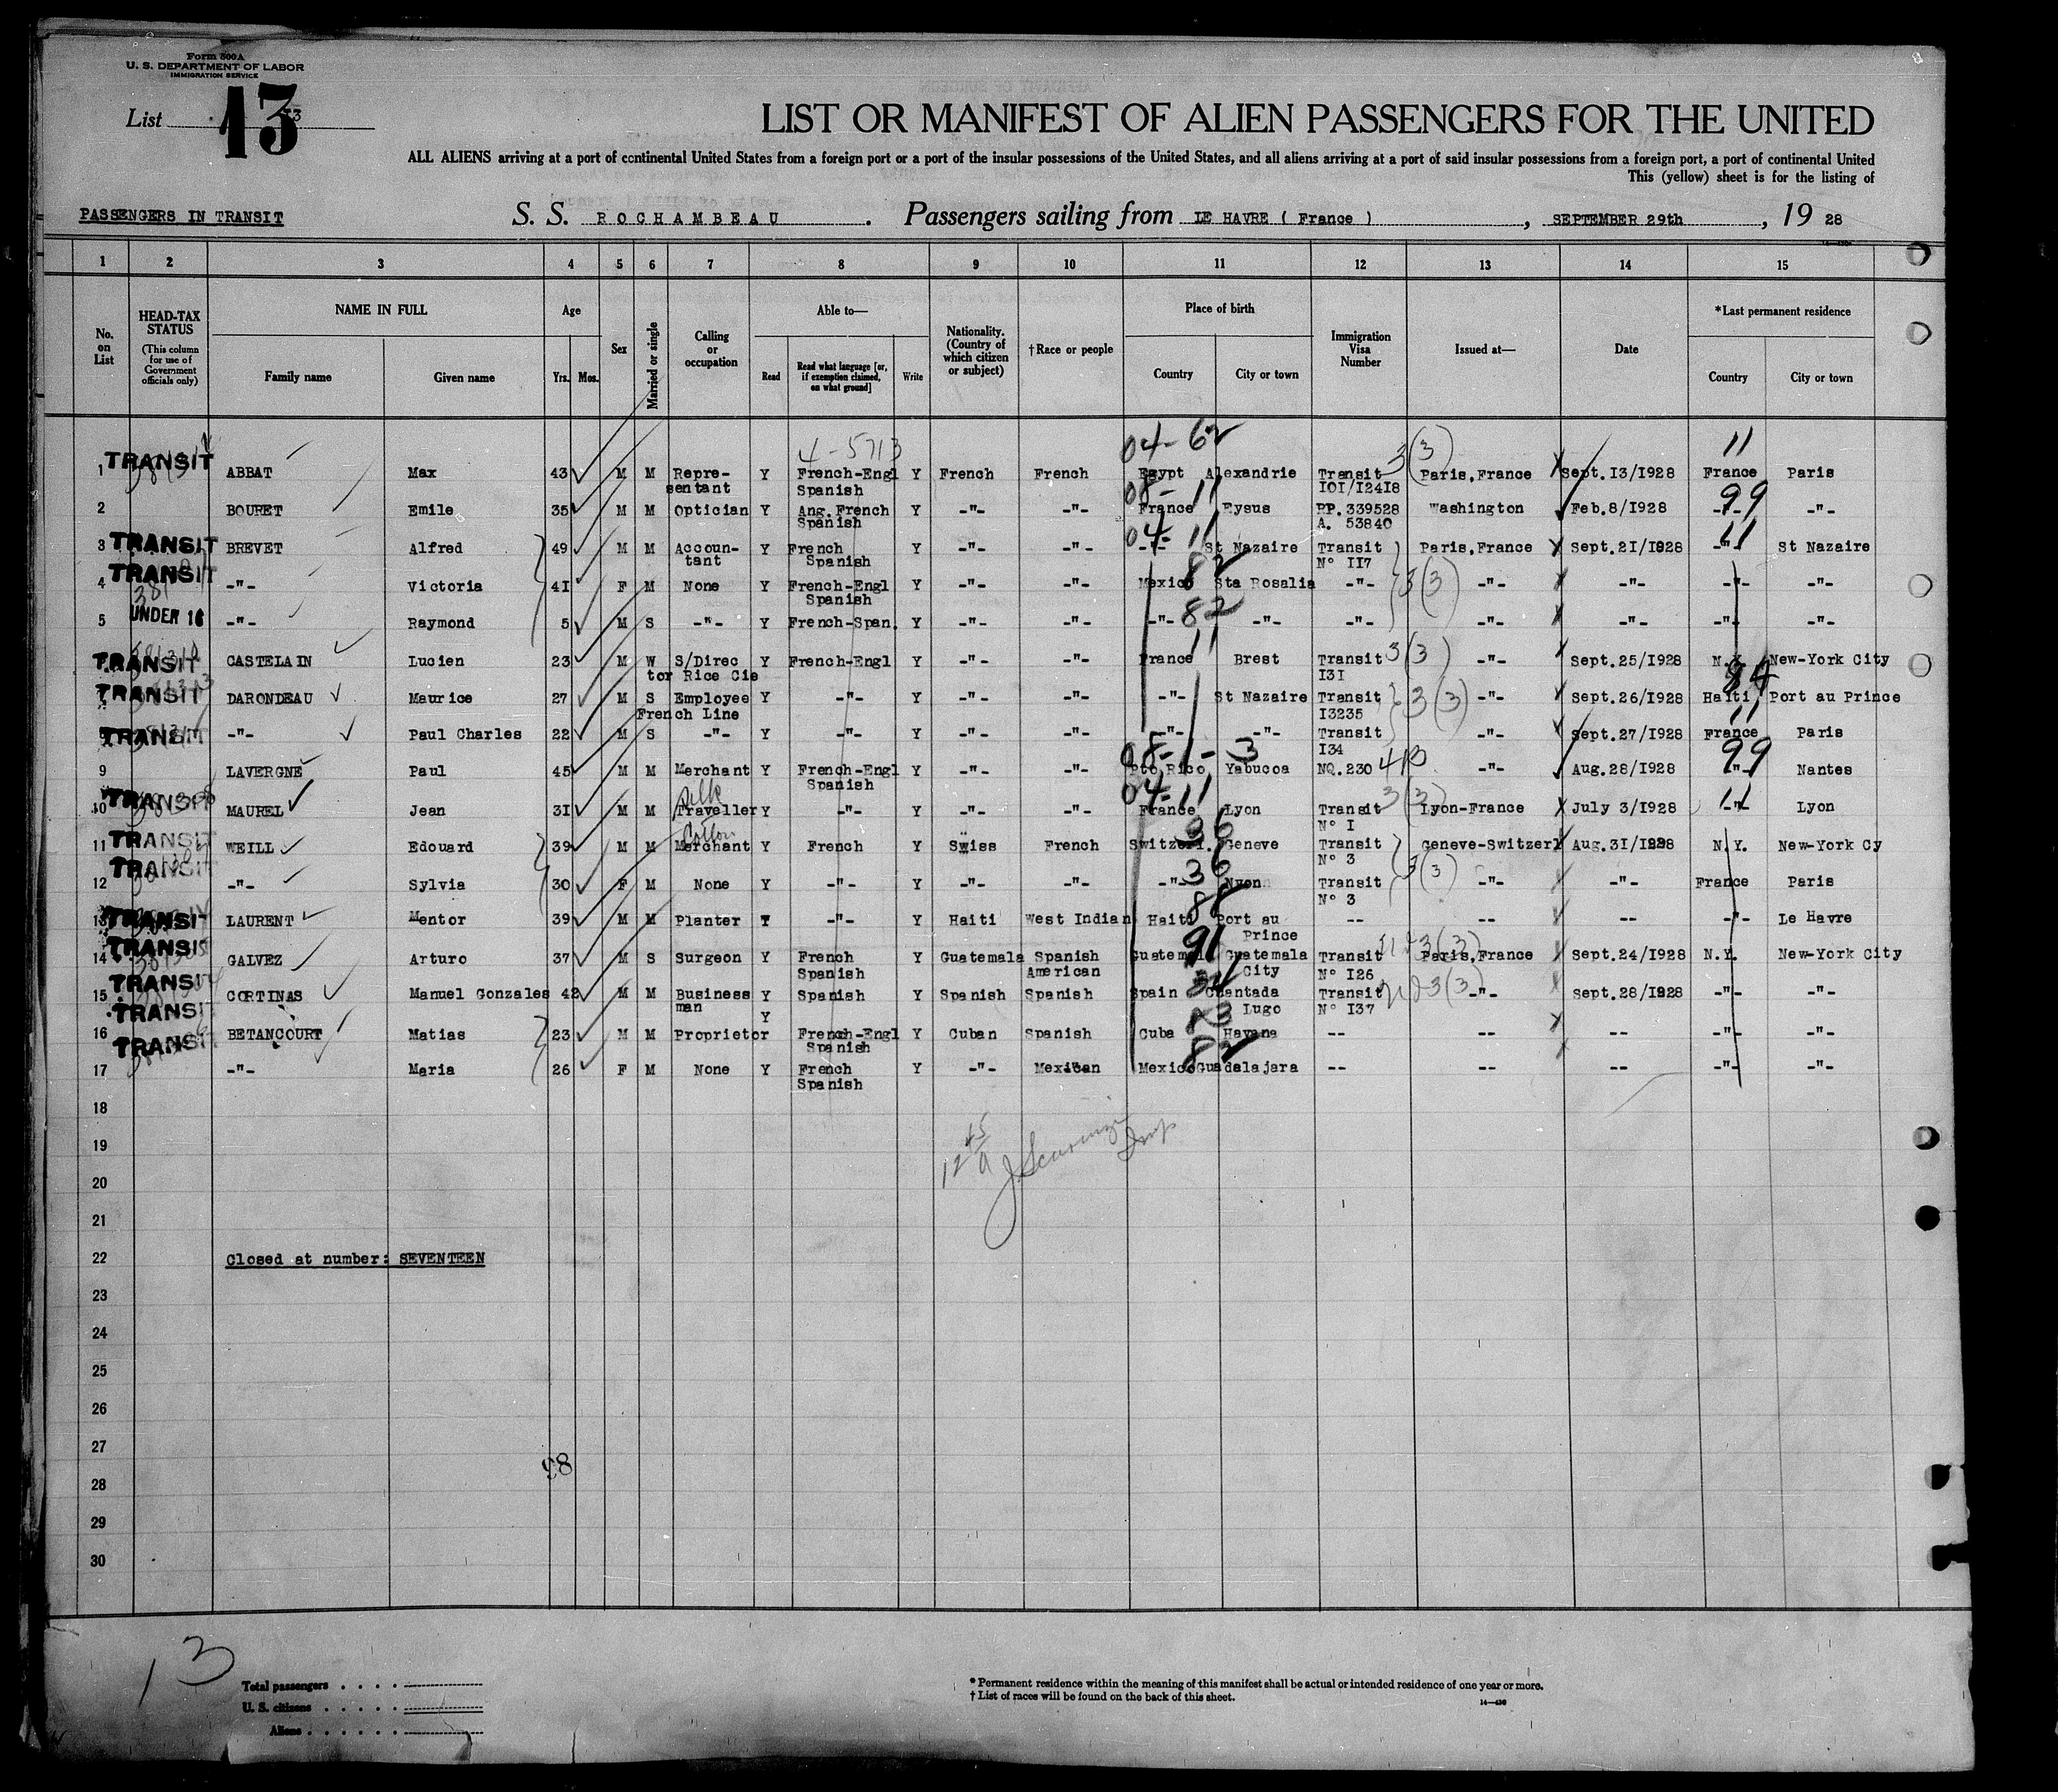 Form 500A
U. S. DEPARTMENT OF LABOR
IMMIGRATION SERVICE
List 13
LIST OR MANIFEST OF ALIEN PASSENGERS FOR THE UNITED
ALL ALIENS arriving at a port of continental United States from a foreign port or a port of the insular possessions of the United States, and all aliens arriving at a port of said insular possessions from a foreign port, a port of continental United
This (yellow) sheet is for the listing of
PASSENGERS IN TRANSIT S. S. ROCHAMBEAU . Passengers sailing from LE HAVRE ( France ) , SEPTEMBER 29th , 19 28
1 2 3 4 5 6 7 8 9 10 11 12 13 14 15
No. on List
HEAD-TAX STATUS (This column for use of Government officials only)
NAME IN FULL Family name Given name
Age Yrs. Mos.
Sex
Married or single
Calling or occupation
Able to— Read Read what language [or, if exemption claimed, on what ground] Write
Nationality. (Country of which citizen or subject)
†Race or people
Place of birth Country City or town
Immigration Visa Number
Issued at—
Date
*Last permanent residence Country City or town
4-5713 04-62 3(3) 11
1 TRANSIT ABBAT Max 43 M M Repre- Y French-Engl Y French French Egypt Alexandrie Transit Paris,France Sept.I3/I928 France Paris
sentant Spanish IOI/I24I8
08-11 99
2 BOURET Emile 35 M M Optician Y Ang.French Y -"- -"- France Eysus PP.339528 Washington Feb.8/I928 -"- -"-
Spanish A. 53840
04-11 11
3 TRANSIT BREVET Alfred 49 M M Accoun- Y French Y -"- -"- -"- St Nazaire Transit Paris,France Sept.2I/I928 -"- St Nazaire
tant Spanish N° II7
82
4 TRANSIT -"- Victoria 4I F M None Y French-Engl Y -"- -"- Mexico Sta Rosalia -"- 3(3) -"- -"- -"- -"-
Spanish
82
5 UNDER 16 -"- Raymond 5 M S -"- Y French-Span. Y -"- -"- -"- -"- -"- -"- -"- -"- -"-
11
TRANSIT CASTELAIN Lucien 23 M W S/Direc Y French-Engl Y -"- -"- France Brest Transit 3(3) -"- Sept.25/I928 N.Y. New-York City
tor Rice Cie I3I
TRANSIT DARONDEAU Maurice 27 M S Employee Y -"- Y -"- -"- -"- St Nazaire Transit 3(3) -"- Sept.26/I928 Haiti Port au Prince
French Line I3235
11
8 TRANSIT -"- Paul Charles 22 M S -"- Y -"- Y -"- -"- -"- -"- Transit -"- Sept.27/I928 France Paris
I34
08-1-3 99
9 LAVERGNE Paul 45 M M Merchant Y French-Engl Y -"- -"- Pto Rico Yabucoa NQ.230 -"- Aug.28/I928 -"- Nantes
Spanish
04-11 3(3) 11
10 TRANSIT MAUREL Jean 3I M M Traveller Y -"- Y -"- -"- France Lyon Transit Lyon-France July 3/I928 -"- Lyon
N° I
Cotton 36
11 TRANSIT WEILL Edouard 39 M M Merchant Y French Y Swiss French Switzerl. Geneve Transit Geneve-Switzerl Aug.3I/I928 N.Y. New-York Cy
N° 3
36 3(3)
12 TRANSIT -"- Sylvia 30 F M None Y -"- Y -"- -"- -"- Nyon Transit -"- -"- France Paris
N° 3
13 TRANSIT LAURENT Mentor 39 M M Planter Y -"- Y Haiti West Indian Haiti Port au -- -- -- -"- Le Havre
Prince
91 3(3)
14 TRANSIT GALVEZ Arturo 37 M S Surgeon Y French Y Guatemala Spanish Guatemal Guatemala Transit Paris,France Sept.24/I928 N.Y. New-York City
Spanish American City N° I26
15 TRANSIT CORTINAS Manuel Gonzales 42 M M Business Y Spanish Y Spanish Spanish Spain Chantada Transit 3(3) -"- Sept.28/I928 -"- -"-
man Lugo N° I37
16 TRANSIT BETANCOURT Matias 23 M M Proprietor Y French-Engl Y Cuban Spanish Cuba Havana -- -- -- -"- -"-
Spanish
82
17 TRANSIT -"- Maria 26 F M None Y French Y -"- Mexican Mexico Guadalajara -- -- -- -"- -"-
Spanish
18
19
20
21
22 Closed at number: SEVENTEEN
23
24
25
26
27
28
29
30
13
Total passengers
U. S. citizens
Aliens
* Permanent residence within the meaning of this manifest shall be actual or intended residence of one year or more.
† List of races will be found on the back of this sheet.
14—430